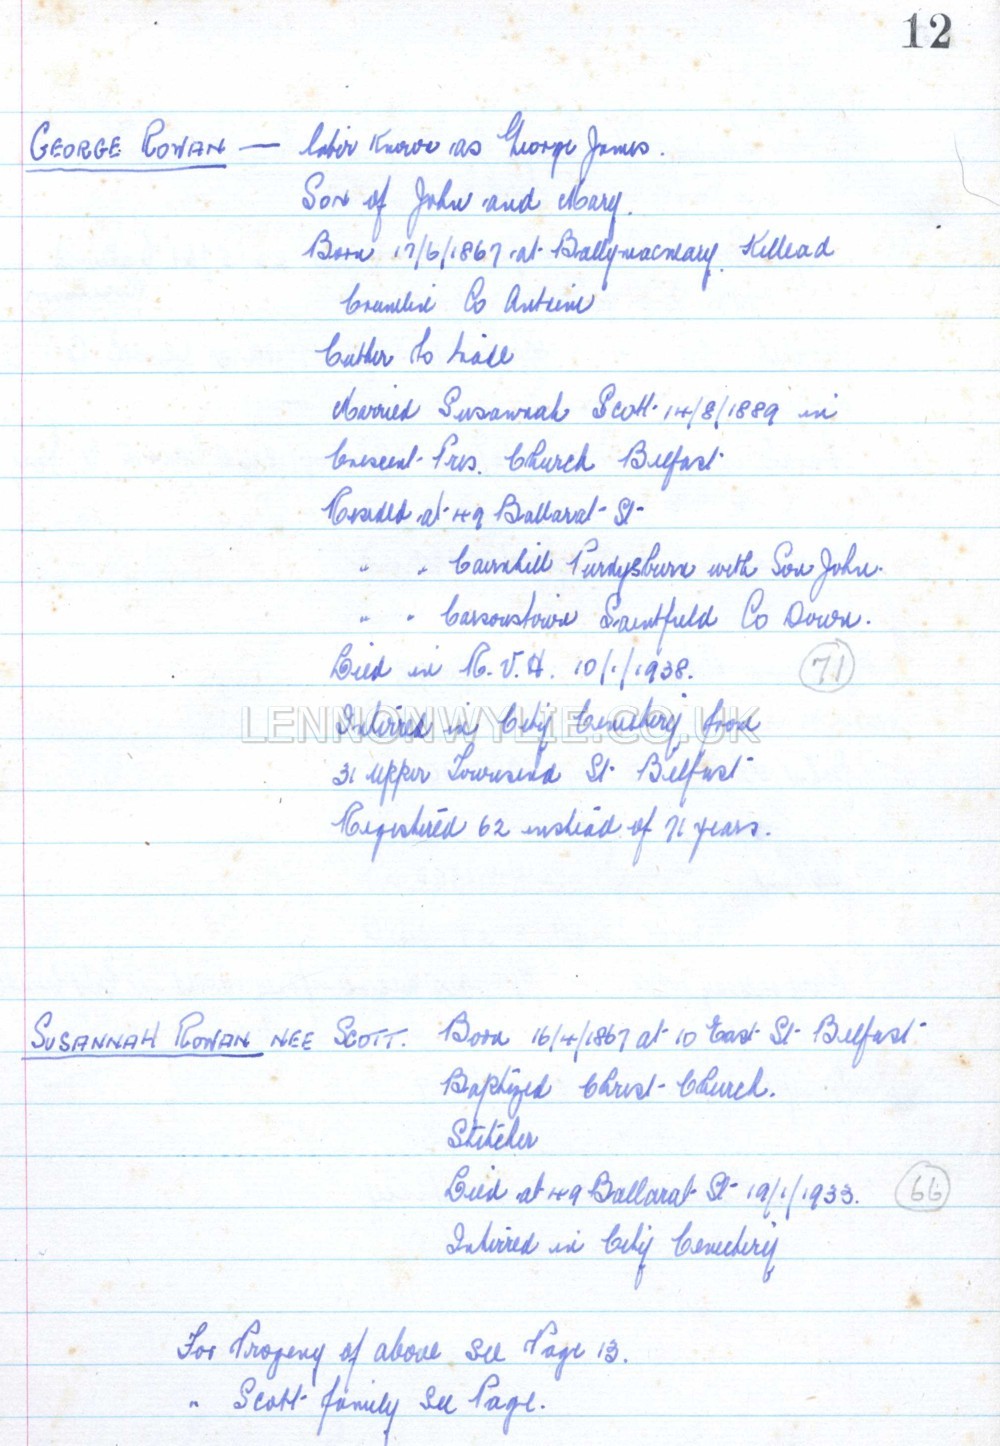 12
GEORGE ROWAN — later Known as George James.
Son of John and Mary.
Born 17/6/1867 at Ballymacmary Killead
Crumlin Co Antrim
Cutter to trade
Married Susannah Scott 14/8/1889 in
Crescent Pres. Church Belfast
Resided at 49 Ballarat St
" " Cairnhill Purdysburn with Son John.
" " Carsonstown Saintfield Co Down.
Died in R.V.H. 10/1/1938. 71
Interred in City Cemetery from
LENNONWYLIE.CO.UK
31 Upper Townsend St Belfast
Registered 62 instead of 71 years.
SUSANNAH ROWAN NEE SCOTT. Born 16/4/1867 at 10 East St Belfast
Baptized Christ Church.
Stitcher
Died at 49 Ballarat St 19/1/1933. 66
Interred in City Cemetery
For Progeny of above see Page 13.
" Scott family see Page.